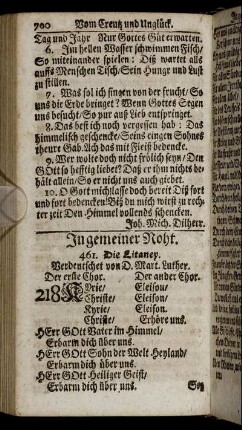 700 Vom Creutz und Unglück.
Tag und Jahr Nur Gottes Güt erwarten.
6. Im hellen Wasser schwimmen Fisch/
So miteinander spielen: Diß wartet alls
auffs Menschen Tisch/ Sein Hunge und Lust
zu stillen.
7. Was sol ich singen von der frucht/ So
uns die Erde bringet? Wenn Gottes Segen
uns besucht/ So pur auf Lieb entspringet.
8. Das best ich noch vergessen hab: Das
himmelisch geschencke/ Seins eingen Sohns
theure Gab/ Ich das mit Fleiß bedencke.
9. Wer wolte doch nicht frölich seyn/ Den
GOtt so hefftig liebet? Daß er ihm nichts be-
hält allein/ So er nicht uns auch giebet.
10. O Gott nich lasse doch bereit Diß fort
und fort bedencken/ Biß du mich wirst zu rech-
ter zeit Den Himmel vollends schencken.
Joh. Mich. Dilherr.
In gemeiner Noht.
461. Die Litaney.
Verdeutschet von D. Mart. Luther.
Der erste Chor. Der ander Chor.
218 KYrie/ Eleison/
Christe/ Eleison/
Kyrie/ Eleison.
Christe/ Erhöre uns.
HErr GOtt Vater im Himmel/
Erbarm dich über uns.
HErr GOtt Sohn der Welt Heyland/
Erbarm dich über uns.
HErr GOtt Heiliger Geist/
Erbarm dich über uns. Sey